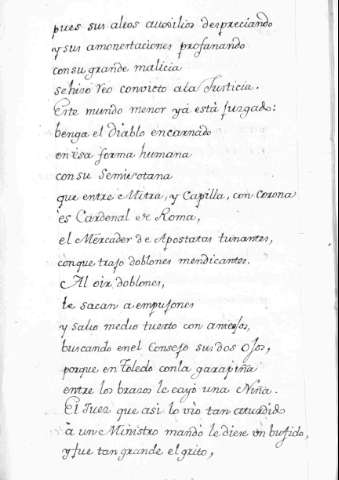 pues sus altos auxilios despreciando
y sus amonestaciones profanando
con su grande malicia
se hizo reo convicto a la Justicia.
Este mundo menor yá está juzgado:
benga el diablo encarnado
en esa forma humana
con su Semisotana
que entre Mitra, y Capilla, con Corona
es Cardenal de Roma,
el Mercader de Apostatas tunantes,
con que trajo doblones mendicantes.
Al oir doblones,
le sacan a empujones
y salio medio tuerto con anteojos,
buscando en el Consejo sus dos Ojos,
porque en Toledo con la garapiña
entre los brazos le cayó una Niña.
El Juez que asi lo vio tan aturdido
à un Ministro mandó le diese un bufido,
y fue tan grande el grito,